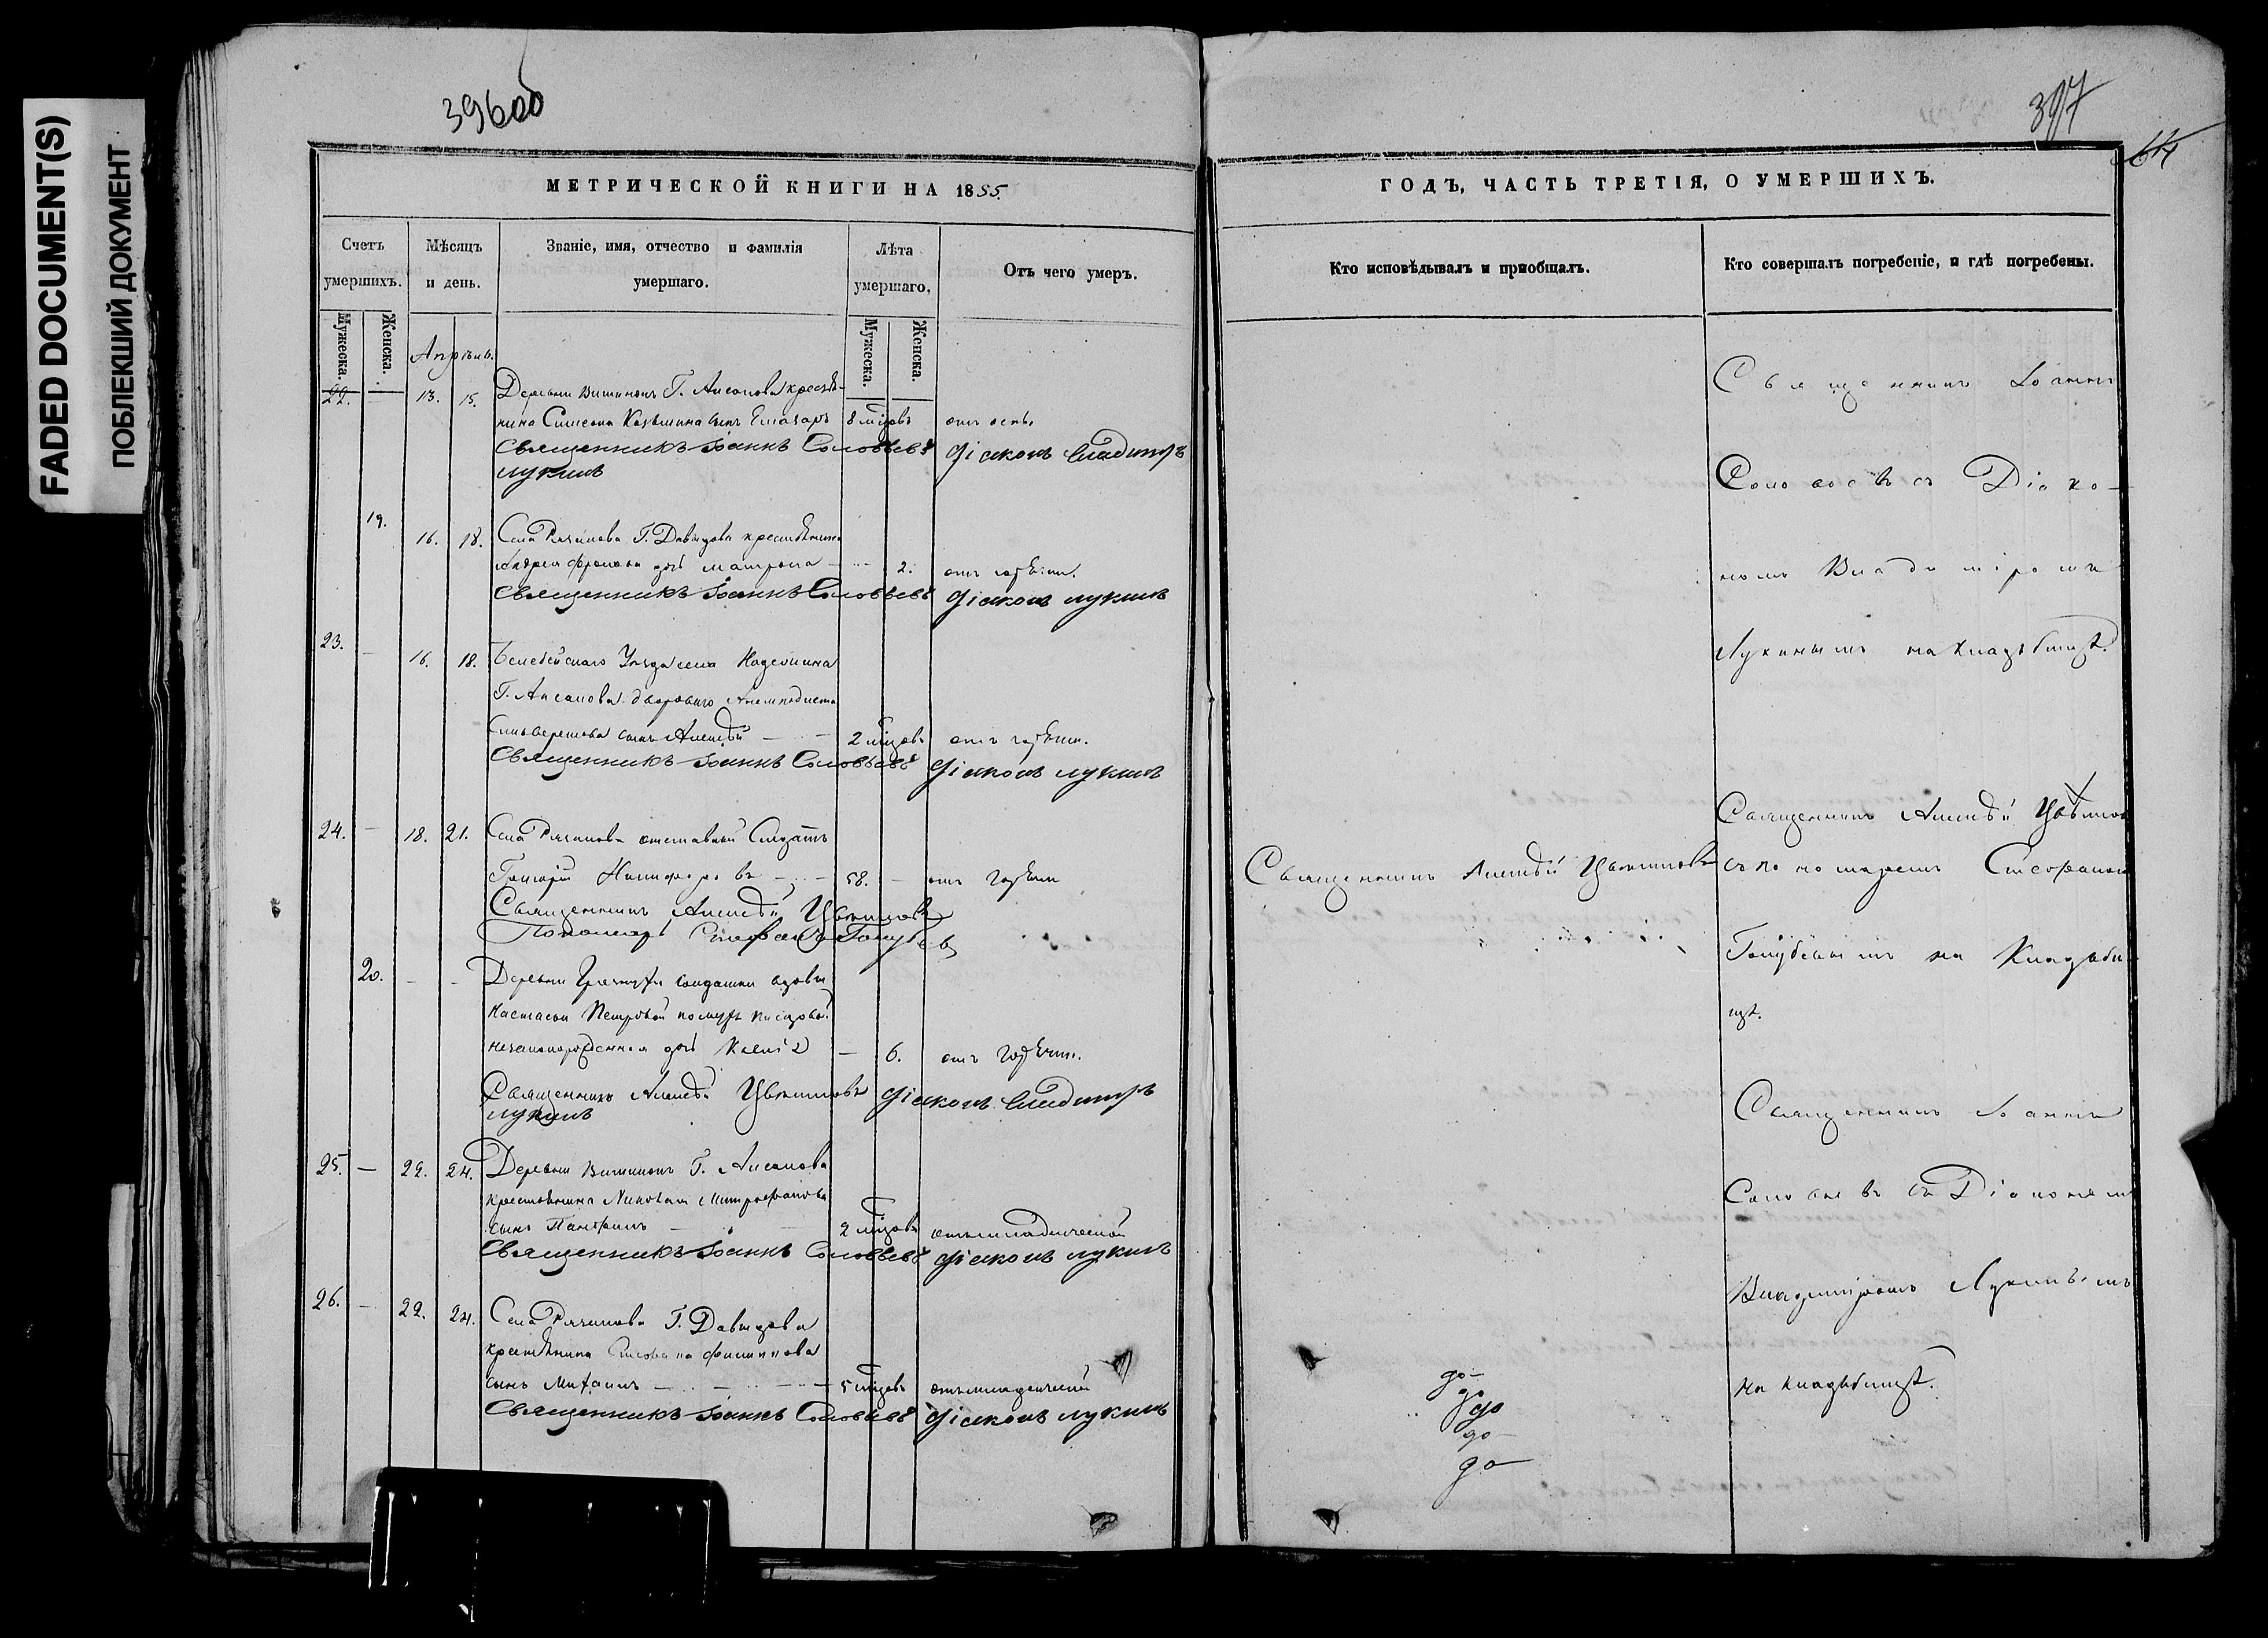 FADED DOCUMENT(S)
ПОБЛЕКШИЙ ДОКУМЕНТ
396об
397
МЕТРИЧЕСКОЙ КНИГИ НА 1855.
ГОДЪ, ЧАСТЬ ТРЕТІЯ, О УМЕРШИХЪ.
Счетъ умершихъ.
Мѣсяцъ и день.
Званіе, имя, отчество и фамилія умершаго.
Лѣта умершаго.
Отъ чего умеръ.
Кто исповѣдывалъ и приобщалъ.
Кто совершалъ погребеніе, и гдѣ погребены.
Мужеска.
Женска.
Мужеска.
Женска.
Апрѣль.
22. — 13. 15. Деревни Г. Аксакова крестья-
нина Симеона сынъ 8 мѣсяцовъ отъ оспы.
Священникъ Іоаннъ Соловьевъ Діаконъ Владимиръ
Лукинъ
19. 16. 18. Села Г. Давыдова крестьянина
Андрея дочь Матрона 2. отъ горячки.
Священникъ Іоаннъ Соловьевъ Діаконъ Лукинъ
23. — 16. 18. Белебейскаго Уѣзда села Надеждина
Г. Аксакова двороваго
Сильверстова сынъ Алексѣй 2 мѣсяцовъ отъ горячки.
Священникъ Іоаннъ Соловьевъ Діаконъ Лукинъ
24. — 18. 21. Села отставный Солдатъ
Григорій Никифоровъ 58. — отъ горячки
Священникъ Алексѣй Цвѣтковъ
Пономарь Стефанъ Голубевъ
20. — - Деревни солдатки вдовы
Настасьи Петровой по мужѣ
незаконорожденная дочь — 6. отъ горячки.
Священникъ Алексѣй Цвѣтковъ Діаконъ Владимиръ
Лукинъ
25. — 22. 24. Деревни Г. Аксакова
крестьянина Николая Митрофанова
сынъ Панфилъ 2 мѣсяцовъ отъ младенческой
Священникъ Іоаннъ Соловьевъ Діаконъ Лукинъ
26. — 22. 24. Села Г. Давыдова
крестьянина Филиппова
сынъ Михаилъ 5 мѣсяцовъ отъ младенческой
Священникъ Іоаннъ Соловьевъ Діаконъ Лукинъ
Священникъ Алексѣй Цвѣтковъ
до
до
до
до
до
Священникъ Іоаннъ
Соловьевъ съ Діако-
номъ Владиміромъ
Лукинымъ на кладбищѣ.
Священникъ Алексѣй Цвѣтковъ
съ пономаремъ Стефаномъ
Голубевымъ на Кладби-
щѣ.
Священникъ Іоаннъ
Соловьевъ съ Діакономъ
Владиміромъ Лукинымъ
на кладбищѣ.